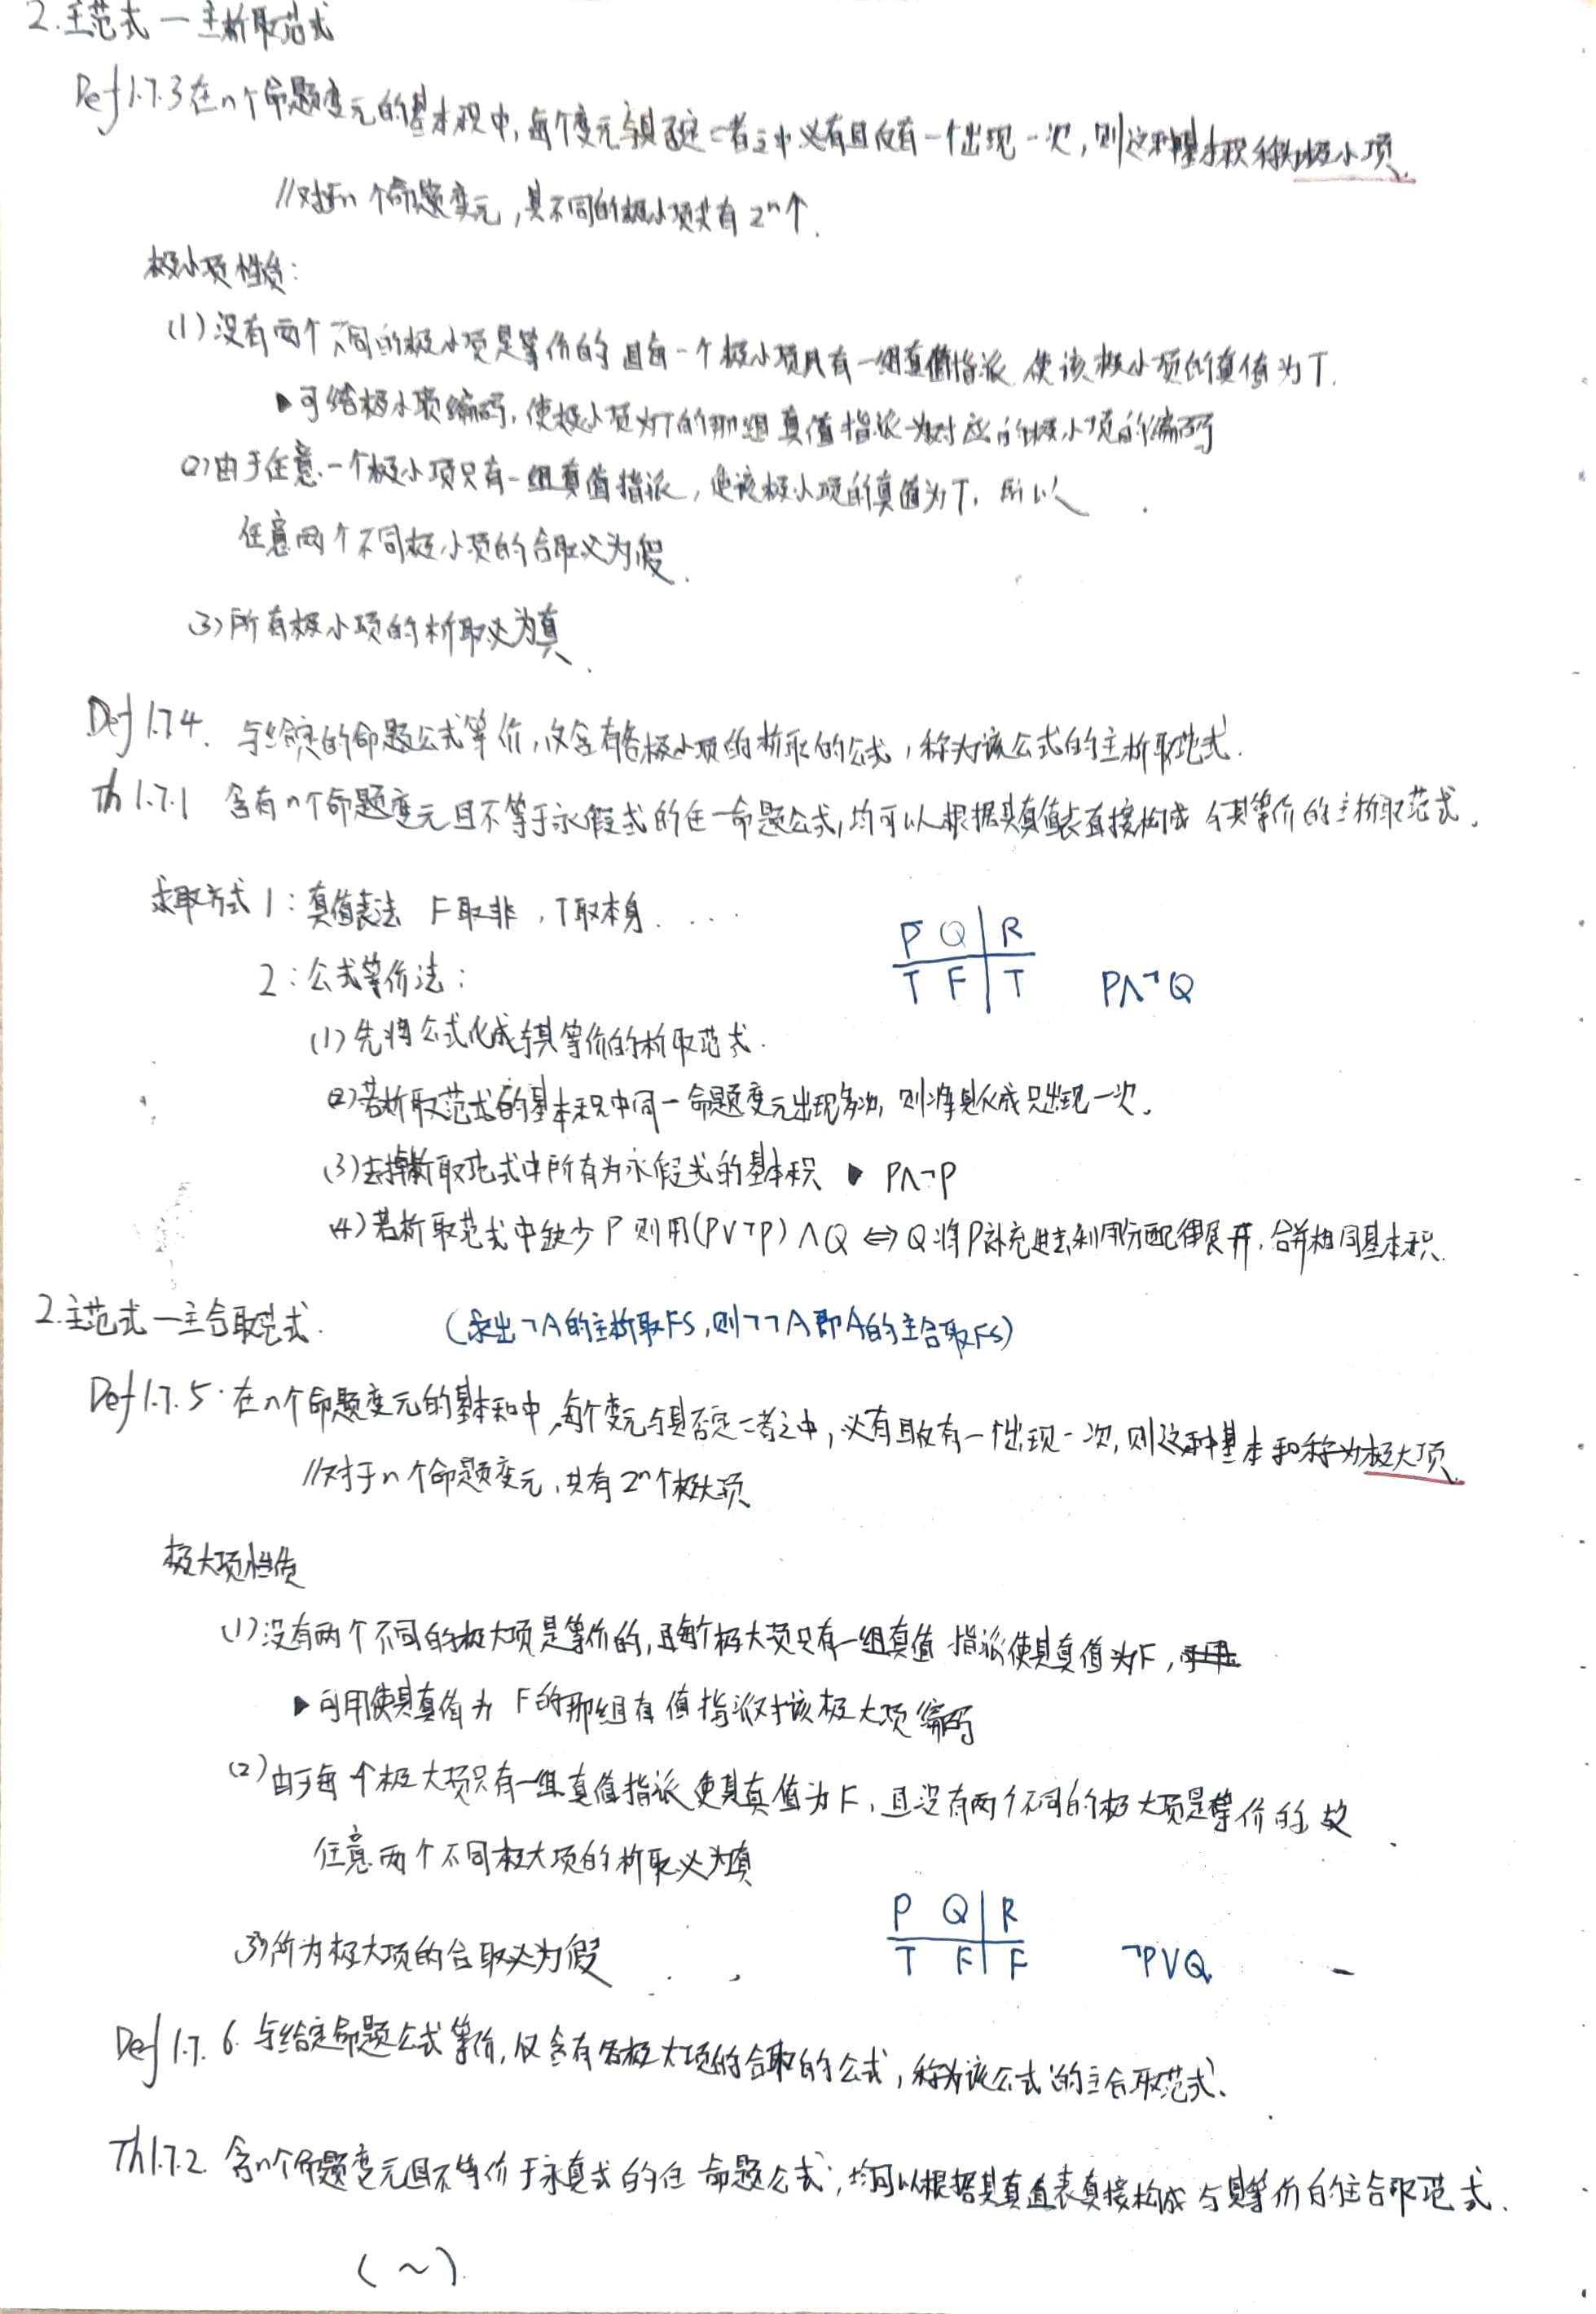 2.主范式一主析取范式
Def1.7.3在n个命题变元的基本积中,每个变元与其否定二者之中必有且仅有一个出现一次,则这种基本积称为极小项.
//对于n个命题变元,其不同的极小项共有2ⁿ个.
极小项性质:
(1)没有两个不同的极小项是等价的且每一个极小项只有一组真值指派使该极小项的真值为T.
▶可给极小项编码,使极小项为T的那组真值指派为对应的极小项的编码
(2)由于任意一个极小项只有一组真值指派,使该极小项的真值为T,所以
任意两个不同极小项的合取必为假.
(3)所有极小项的析取必为真.
Def1.7.4.与给定的命题公式等价,仅含有各极小项的析取的公式,称为该公式的主析取范式.
Th1.7.1 含有n个命题变元且不等于永假式的任一命题公式,均可以根据其真值表直接构成与其等价的主析取范式.
求取方式1:真值表法 F取非,T取本身....
P Q | R
2:公式等价法:
T F | T P∧¬Q
(1)先将公式化成与其等价的析取范式.
(2)若析取范式的基本积中同一命题变元出现多次,则将其化成只出现一次.
(3)去掉析取范式中所有为永假式的基本积 ▶ P∧¬P
(4)若析取范式中缺少P则用(P∨¬P)∧Q⇔Q将P补充进去,利用分配律展开,合并相同基本积.
2.主范式一主合取范式. (求出¬A的主析取FS,则¬¬A即A的主合取FS)
Def1.7.5.在n个命题变元的基本和中,每个变元与其否定二者之中,必有且仅有一个出现一次,则这种基本和称为极大项.
//对于n个命题变元,共有2ⁿ个极大项
极大项性质
(1)没有两个不同的极大项是等价的,且每个极大项只有一组真值指派使其真值为F,
▶可用使其真值为F的那组真值指派对该极大项编码
(2)由于每个极大项只有一组真值指派使其真值为F,且没有两个不同的极大项是等价的故
任意两个不同极大项的析取必为真
P Q | R
(3)所有极大项的合取必为假
T F | F ¬P∨Q
Def1.7.6.与给定命题公式等价,仅含有各极大项的合取的公式,称为该公式的主合取范式.
Th1.7.2.含n个命题变元且不等价于永真式的任命题公式;均可以根据其真值表直接构成与其等价的主合取范式.
(~).